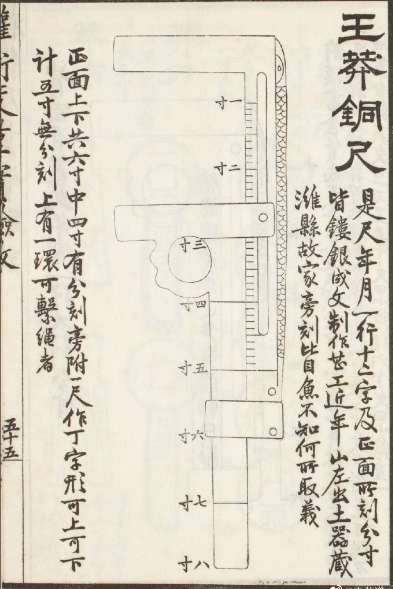 王莽銅尺
是尺年月一行十二字及正面所刻分寸
皆鏤銀成文制作甚工近年山左出土器藏
濰縣故家旁刻比目魚不知何所取義
一寸
二寸
三寸
四寸
五寸
六寸
七寸
八寸
正面上下共六寸中四寸有分刻旁附一尺作丁字形可上可下
計五寸無分刻上有一環可繫繩者
五十五